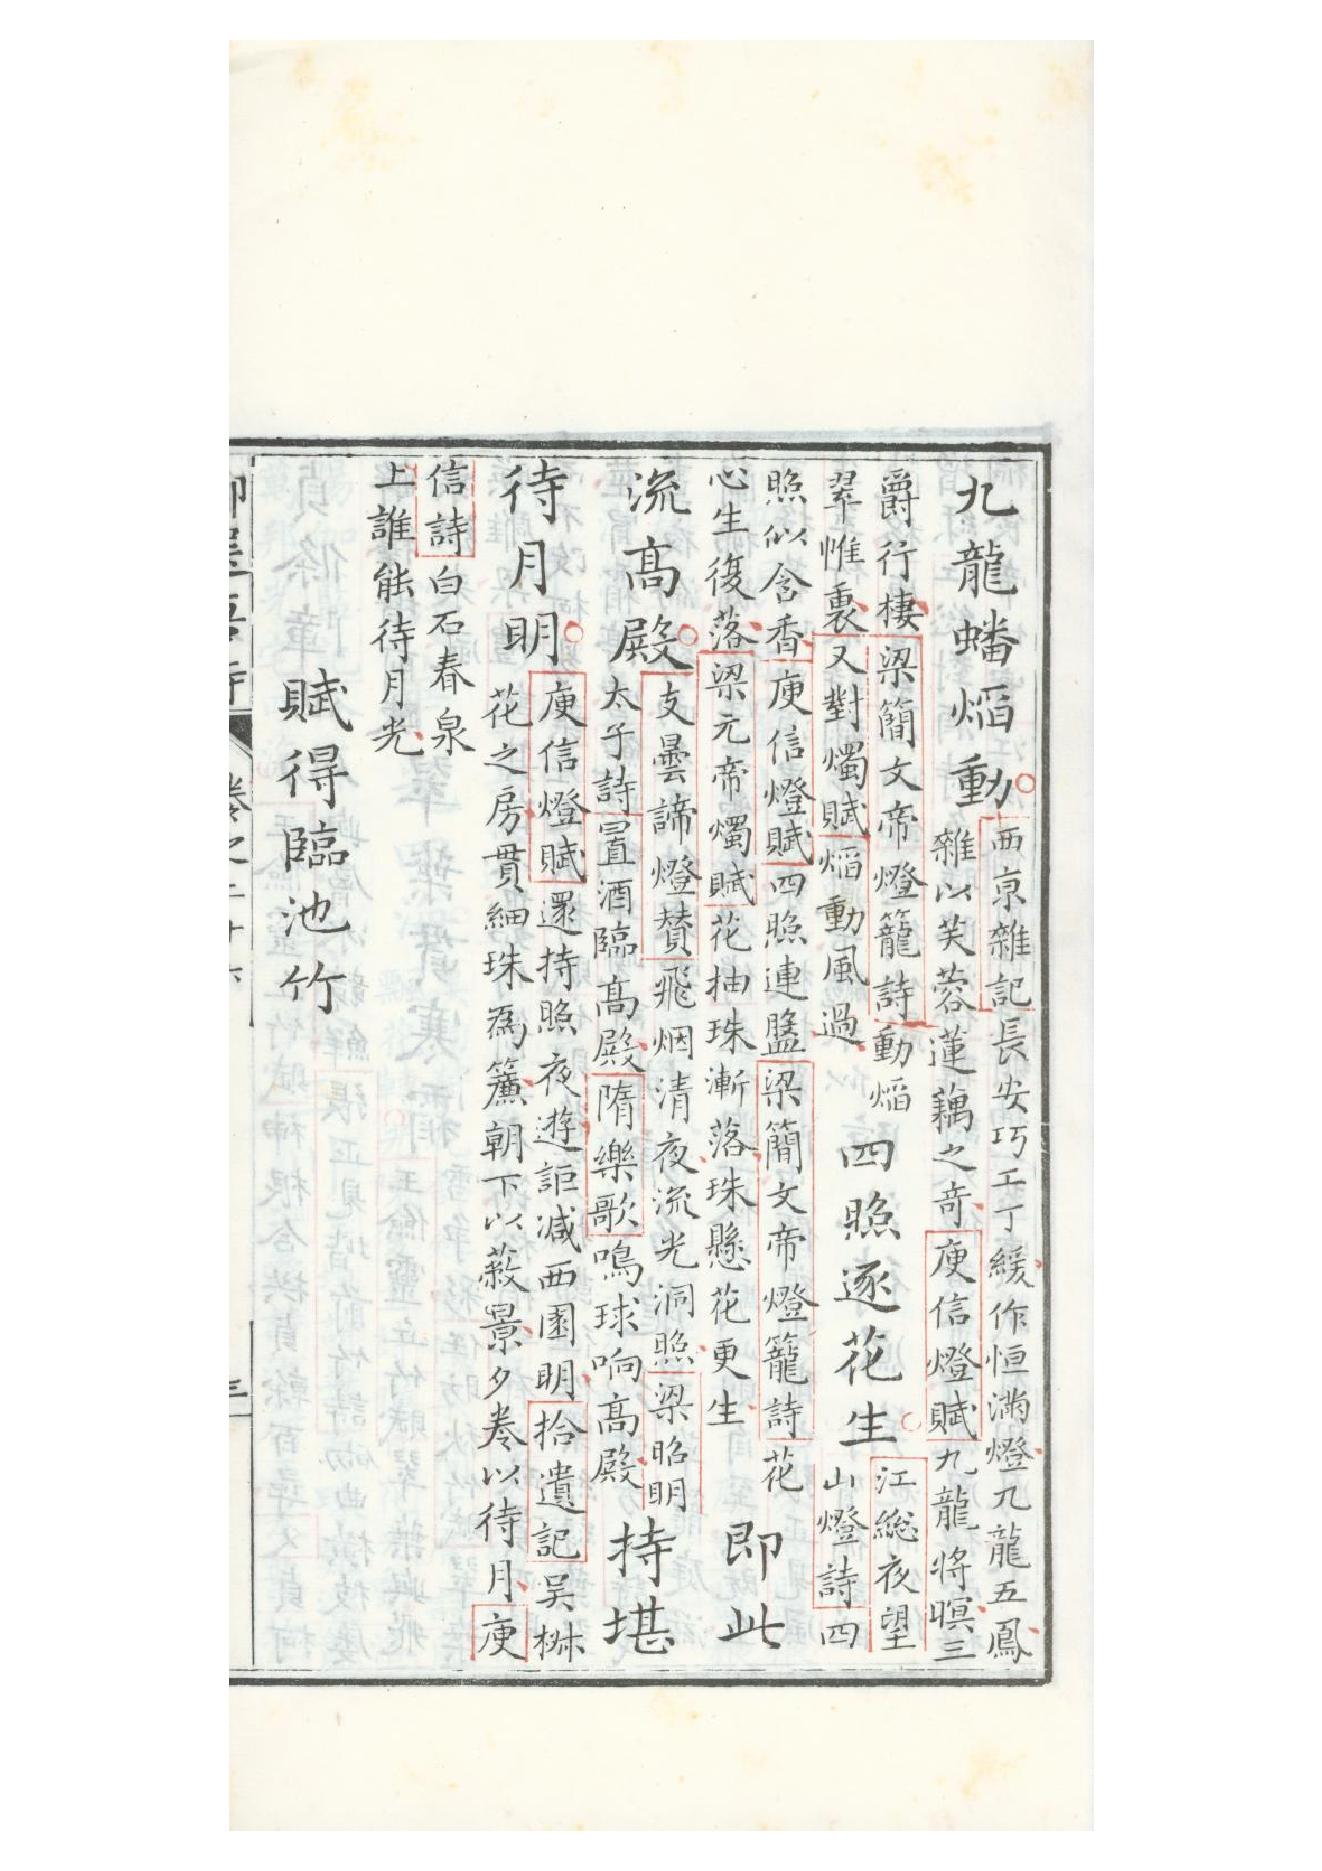 九龍蟠熖動
西京雜記長安巧工丁緩作恒滿燈九龍五鳳
雜以芙蓉蓮藕之奇庾信燈賦九龍將暝三
爵行棲梁簡文帝燈籠詩動熖
翠帷裏又對燭賦熖動風過
四照逐花生
江總夜望
山燈詩四
照似含香庾信燈賦四照連盤梁簡文帝燈籠詩花
心生復落梁元帝燭賦花抽珠漸落珠懸花更生
即此
流高殿
支曇諦燈賛飛烟清夜流光洞照梁昭明
太子詩置酒臨高殿隋樂歌鳴球响高殿
持堪
待月明
庾信燈賦還持照夜遊詎减西園明拾遺記吴
花之房貫細珠爲簾朝下以蔽景夕卷以待月庾
信詩白石春泉
上誰能待月光
賦得臨池竹